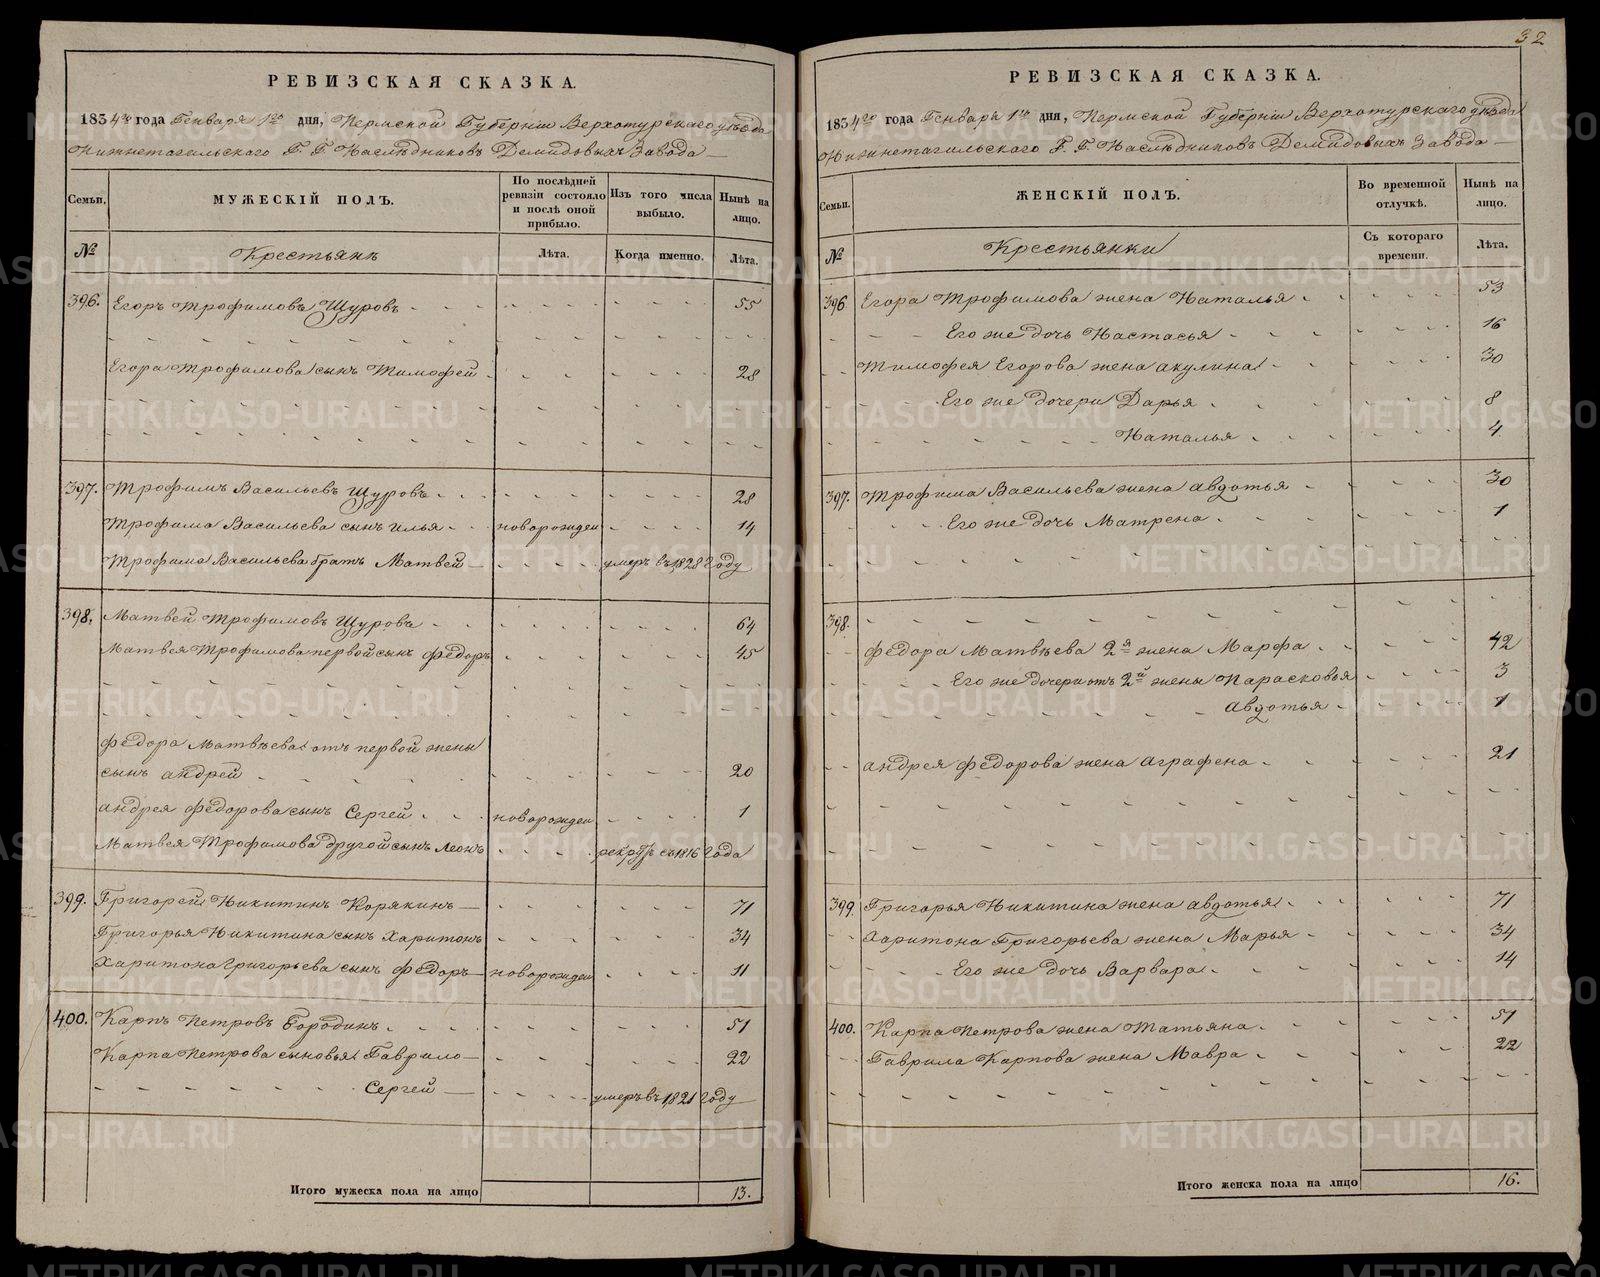 РЕВИЗСКАЯ СКАЗКА.
1834го года Генваря 1го дня, Пермской Губернiи Верхотурскаго уѣзда
Нижнетагильскаго Г. Г. Наслѣдниковъ Демидовыхъ Завода
Семьи.
МУЖЕСКIЙ ПОЛЪ.
По послѣдней ревизiи состояло и послѣ оной прибыло.
Изъ того числа выбыло.
Нынѣ на лицо.
№
Крестьянъ
Лѣта.
Когда именно.
Лѣта.
396. Егоръ Трофимовъ Щуровъ 55
Егора Трофимова сынъ Тимофей 28
397. Трофимъ Васильевъ Щуровъ 28
Трофима Васильева сынъ Илья новорожден 14
Трофима Васильева братъ Матвей умеръ въ 1828 году
398. Матвей Трофимовъ Щуровъ 64
Матвея Трофимова первой сынъ Федоръ 45
Федора Матвѣева отъ первой жены
сынъ Андрей 20
Андрея Федорова сынъ Сергей новорожден 1
Матвея Трофимова другой сынъ Леонъ рекрутъ съ 1816 года
399. Григорей Никитинъ Корякинъ 71
Григорья Никитина сынъ Харитонъ 34
Харитона Григорьева сынъ Федоръ новорожден 11
400. Карпъ Петровъ Бородинъ 51
Карпа Петрова сыновья Гаврило 22
Сергей умеръ въ 1821 году
Итого мужеска пола на лицо 13.
32
РЕВИЗСКАЯ СКАЗКА.
1834го года Генваря 1го дня, Пермской Губернiи Верхотурскаго уѣзда
Нижнетагильскаго Г. Г. Наслѣдниковъ Демидовыхъ Завода
Семьи.
ЖЕНСКIЙ ПОЛЪ.
Во временной отлучкѣ.
Нынѣ на лицо.
№
Крестьянки
Съ котораго времени.
Лѣта.
396. Егора Трофимова жена Наталья 53
Его же дочь Настасья 16
Тимофея Егорова жена Акулина 30
Его же дочери Дарья 8
Наталья 4
397. Трофима Васильева жена Авдотья 30
Его же дочь Матрена 1
398.
Федора Матвѣева 2я жена Марфа 42
Его же дочери отъ 2й жены Парасковья 3
Авдотья 1
Андрея Федорова жена Аграфена 21
399. Григорья Никитина жена Авдотья 71
Харитона Григорьева жена Марья 34
Его же дочь Варвара 14
400. Карпа Петрова жена Татьяна 51
Гаврила Карпова жена Мавра 22
Итого женска пола на лицо 16.
METRIKI.GASO-URAL.RU